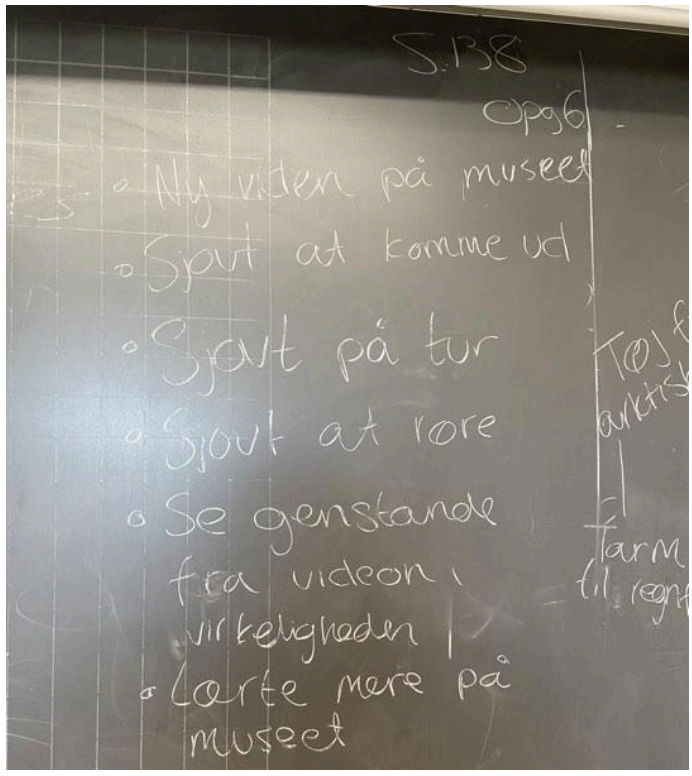 S. 138
Opg 6
Ny viden på museet
Sjovt at komme ud
Sjovt på tur
Sjovt at røre
Se genstande
fra videon i
virkeligheden
Lærte mere på
museet
Tøj f
arktisk
Tarm
til regnt